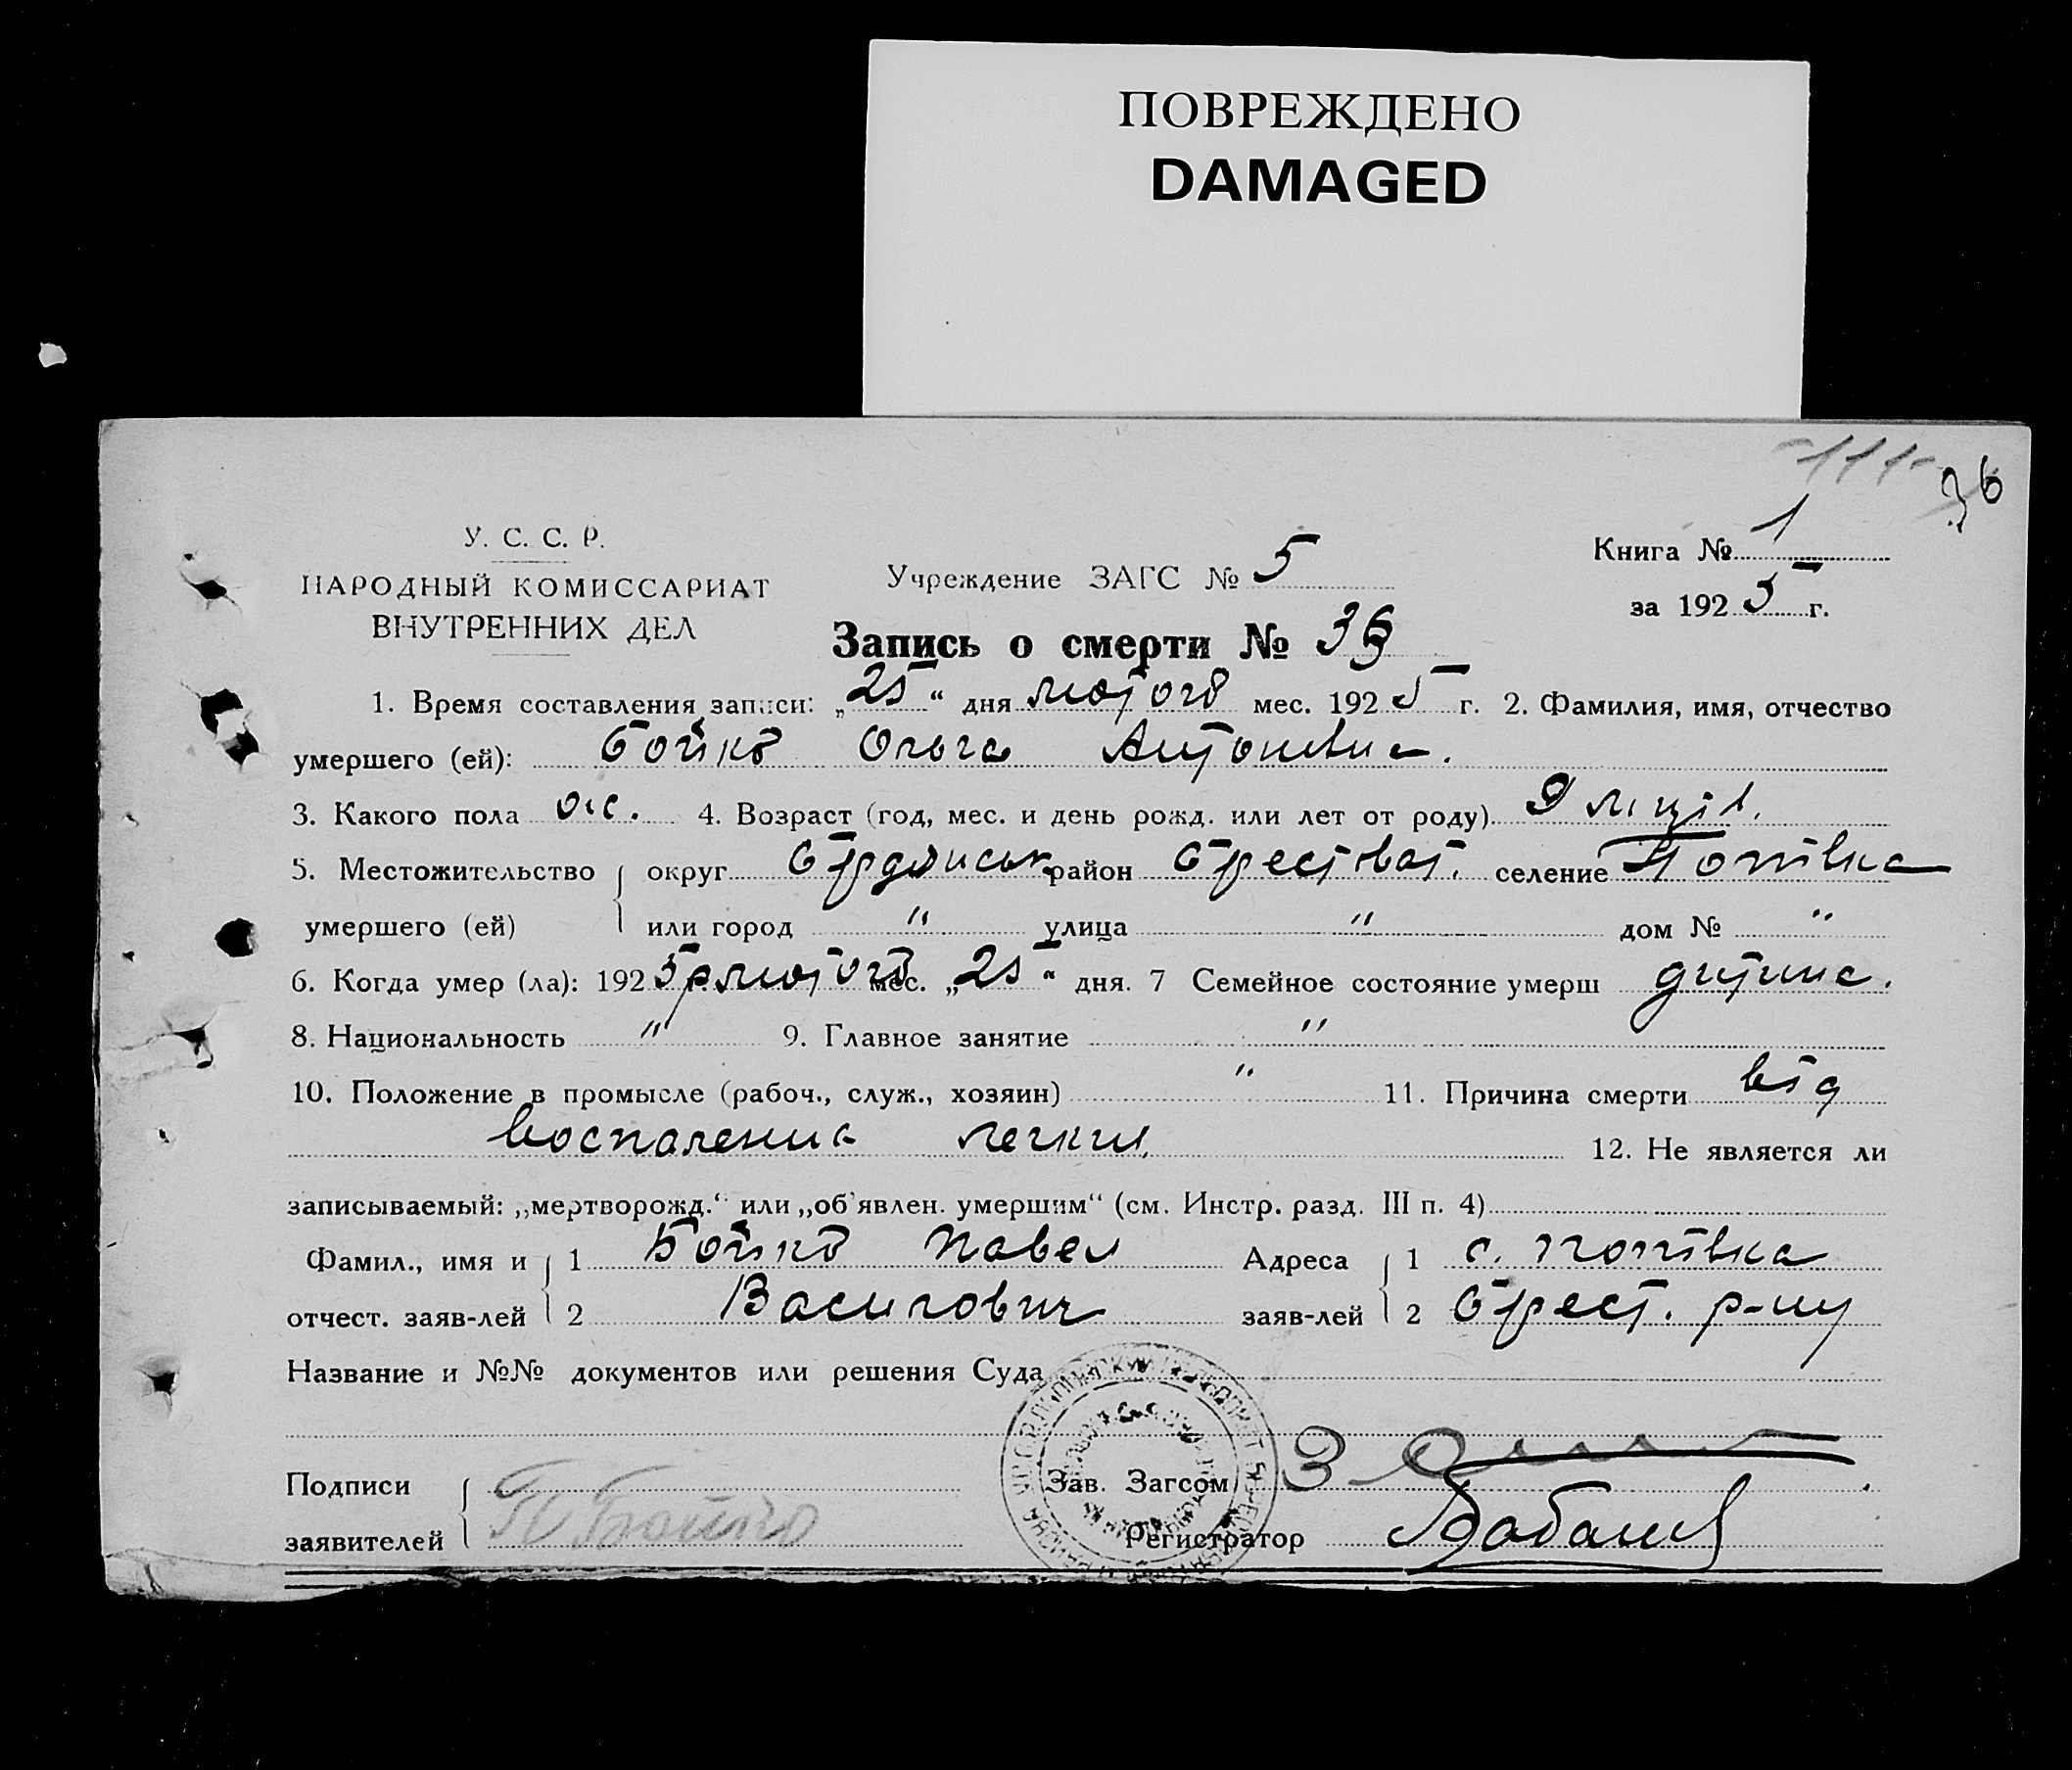 ПОВРЕЖДЕНО
DAMAGED
-111-
36
У. С. С. Р.
НАРОДНЫЙ КОМИССАРИАТ
ВНУТРЕННИХ ДЕЛ
Учреждение ЗАГС № 5
Книга № 1
за 1925 г.
Запись о смерти № 36
1. Время составления записи: „25“ дня лютого мес. 1925 г. 2. Фамилия, имя, отчество
умершего (ей): Бойко Ольга Антонівна.
3. Какого пола ж. 4. Возраст (год, мес. и день рожд. или лет от роду) 9 міців.
5. Местожительство округ Бердянськ район Берестоват. селение Попівка
умершего (ей) или город " улица " дом № "
6. Когда умер (ла): 1925 р. лютого мес. „25“ дня. 7 Семейное состояние умерш дитина.
8. Национальность " 9. Главное занятие "
10. Положение в промысле (рабоч., служ., хозяин) " 11. Причина смерти від
воспаления легких 12. Не является ли
записываемый: „мертворожд.“ или „об'явлен. умершим“ (см. Инстр. разд. III п. 4)
Фамил., имя и 1 Бойко Павел Адреса 1 с. Попівка
отчест. заяв-лей 2 Василович заяв-лей 2 Берест. р-ну
Название и №№ документов или решения Суда
Подписи Зав. Загсом
заявителей П Бойко Регистратор